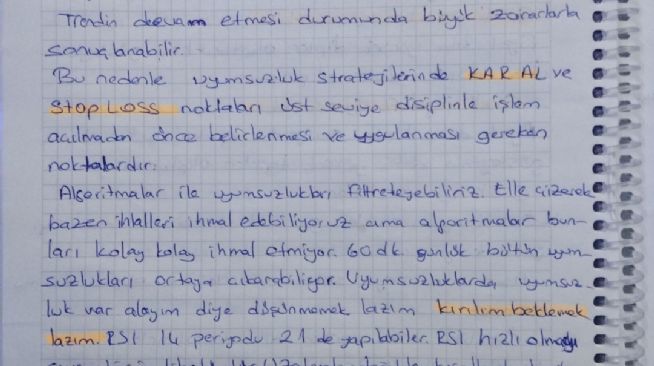 Trendin devam etmesi durumunda büyük zararlarla
sonuçlanabilir.
Bu nedenle uyumsuzluk stratejilerinde KAR AL ve
STOP LOSS noktaları üst seviye disiplinle işlem
açılmadan önce belirlenmesi ve uygulanması gereken
noktalardır.
Algoritmalar ile uyumsuzlukları filtreleyebiliriz. Elle çizerek
bazen ihlalleri ihmal edebiliyoruz ama algoritmalar bun-
ları kolay kolay ihmal etmiyor. 60 dk. günlük bütün uyum-
suzlukları ortaya çıkarabiliyor. Uyumsuzluklarda uyumsuz-
luk var alayım diye düşünmemek lazım kırılım beklemek
lazım. RSI 14 periyodu 21 de yapılabilir. RSI hızlı olmadığı